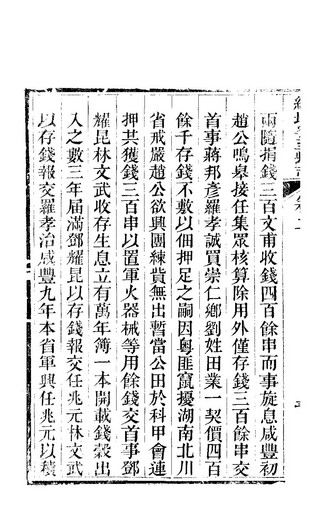 兩隨捐錢三百文甫收錢四百餘串而事旋息咸豐初
趙公鳴皋接任集眾核算除用外僅存錢三百餘串交
首事蔣邦彥羅孝誠買崇仁鄉劉姓田業一契價四百
餘千存錢不敷以佃押足之嗣因粵匪竄擾湖南北川
省戒嚴趙公欲興團練貲無出暫當公田於科甲會連
押共獲錢三百串以置軍火器械等用餘錢交首事鄧
耀昆林文武收存生息立有萬年簿一本開載錢穀出
入之數三年屆滿鄧耀昆以存錢報交任兆元林文武
以存錢報交羅孝治咸豐九年本省軍興任兆元以積